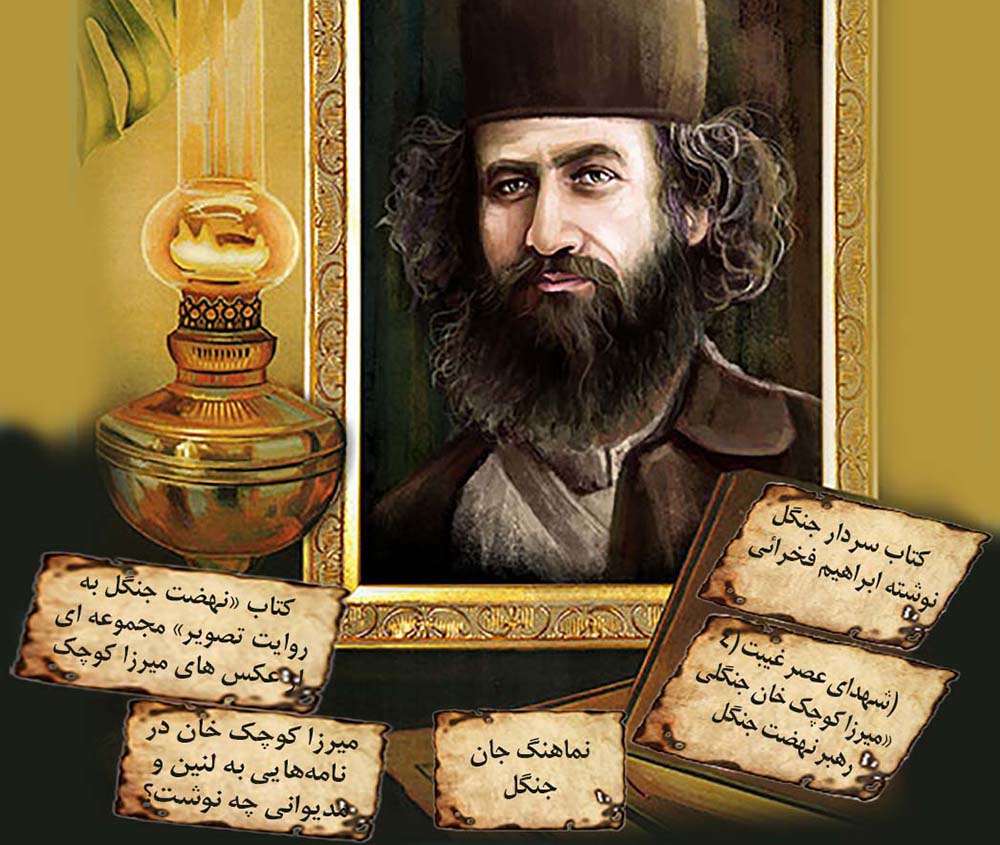 کتاب سردار جنگل
نوشته ابراهیم فخرائی
(شهدای عصر غیبت (٤
«میرزا کوچک خان جنگلی
رهبر نهضت جنگل
کتاب «نهضت جنگل به
روایت تصویر» مجموعه ای
از عکس های میرزا کوچک
میرزا کوچک خان در
نامه‌هایی به لنین و
مدیوانی چه نوشت؟
نماهنگ جان
جنگل